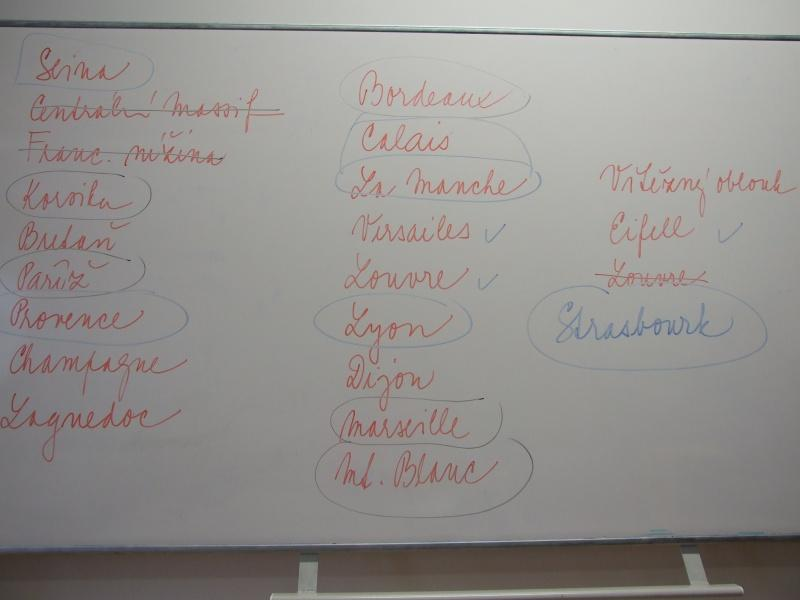 Seina
Centrální massif
Franc. nížina
Korsika
Bretaň
Paříž
Provence
Champagne
Laguedoc
Bordeaux
Calais
La Manche
Versailes
Louvre
Lyon
Dijon
Marseille
Mt. Blanc
Vítězný oblouk
Eifell
Louvre
Strasbourk